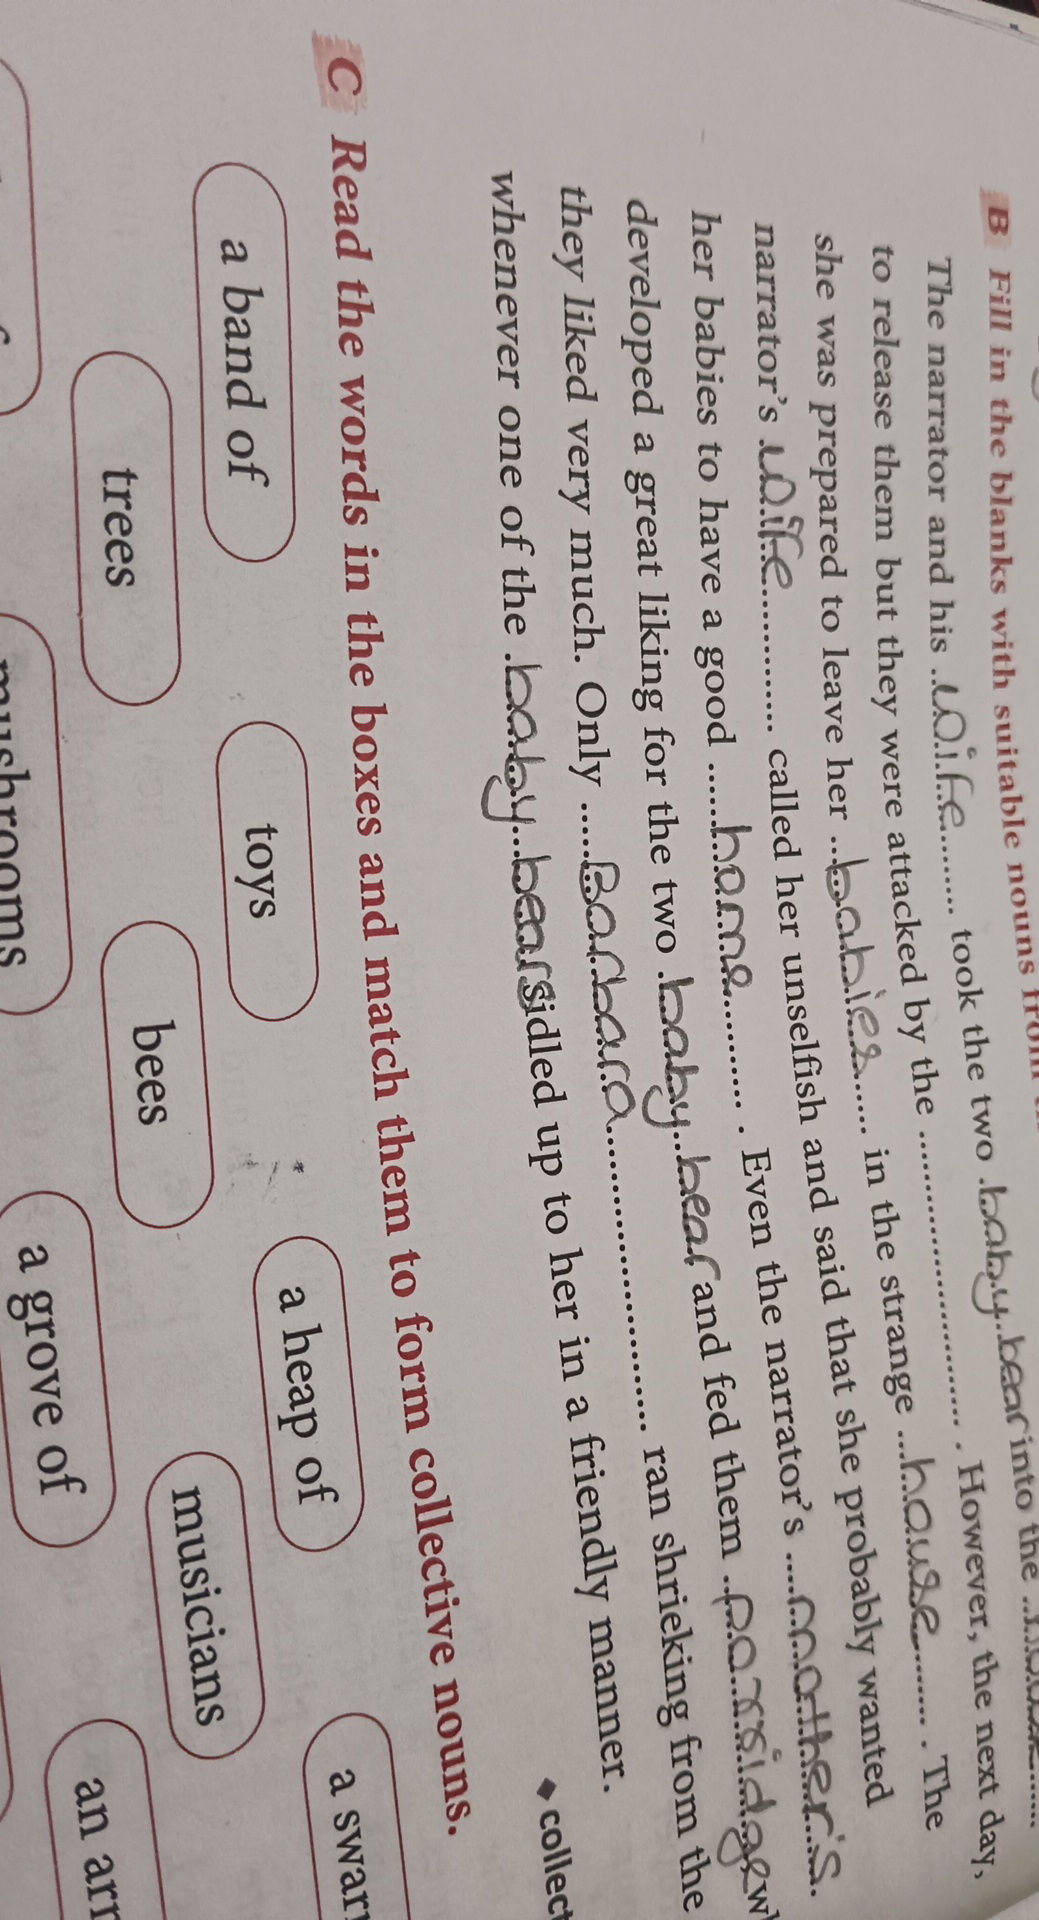 B Fill in the blanks with suitable nouns from
The narrator and his wife took the two baby bear into the
to release them but they were attacked by the ............ . However, the next day,
she was prepared to leave her babies in the strange house . The
narrator's wife called her unselfish and said that she probably wanted
her babies to have a good home . Even the narrator's mother's.
developed a great liking for the two baby bear and fed them
they liked very much. Only Barbara ran shrieking from the
whenever one of the baby bears sidled up to her in a friendly manner.
◆ collect
C Read the words in the boxes and match them to form collective nouns.
a band of toys a heap of a swar
trees bees musicians an arr
mushrooms a grove of